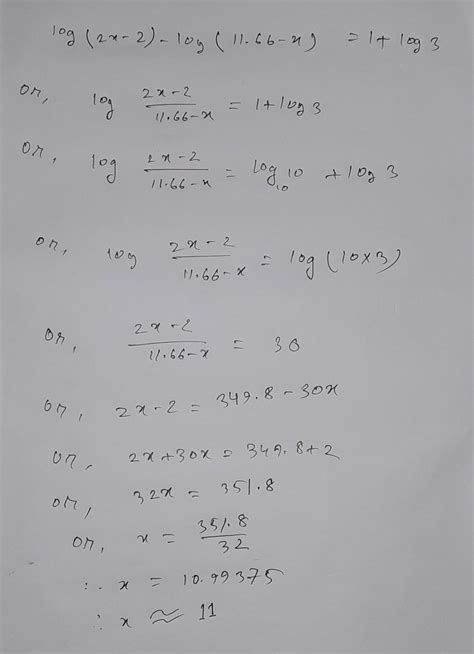 log (2x-2) - log (11.66-x) = 1 + log 3
or, log 2x-2/11.66-x = 1 + log 3
or, log 2x-2/11.66-x = log₁₀10 + log 3
or, log 2x-2/11.66-x = log (10×3)
or, 2x-2/11.66-x = 30
or, 2x-2 = 349.8 - 30x
or, 2x+30x = 349.8+2
or, 32x = 351.8
or, x = 351.8/32
∴ x = 10.99375
∴ x ≈ 11